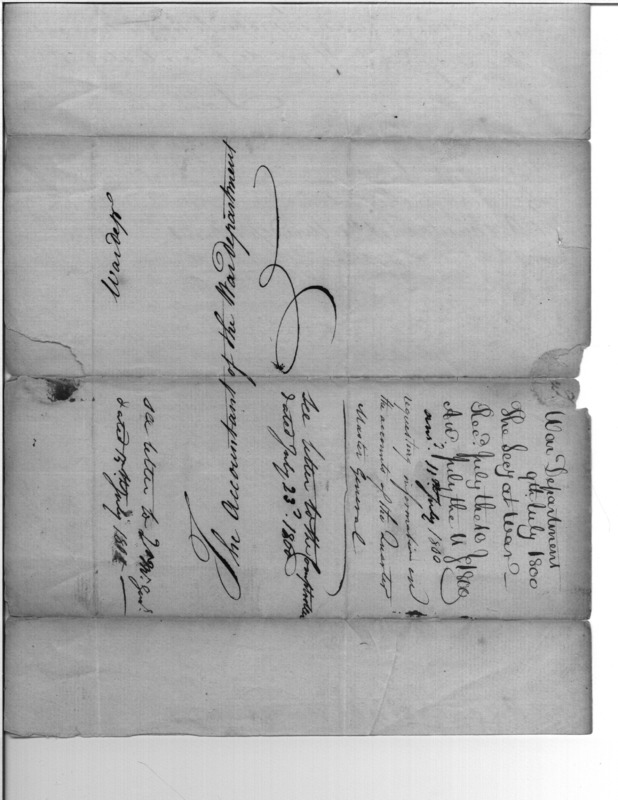 War Department
9th July 1800
The Secy at War
Recd July the 10th 1800
Ansd July the 11th 1800
ansd 11th July 1800
requesting information on
the accounts of the Quarter
Master General
See letter to the Comptroller
dated July 23d 1800
see letter to Qr Mr Genl
dated July
The Accountant of the War Department
War dept